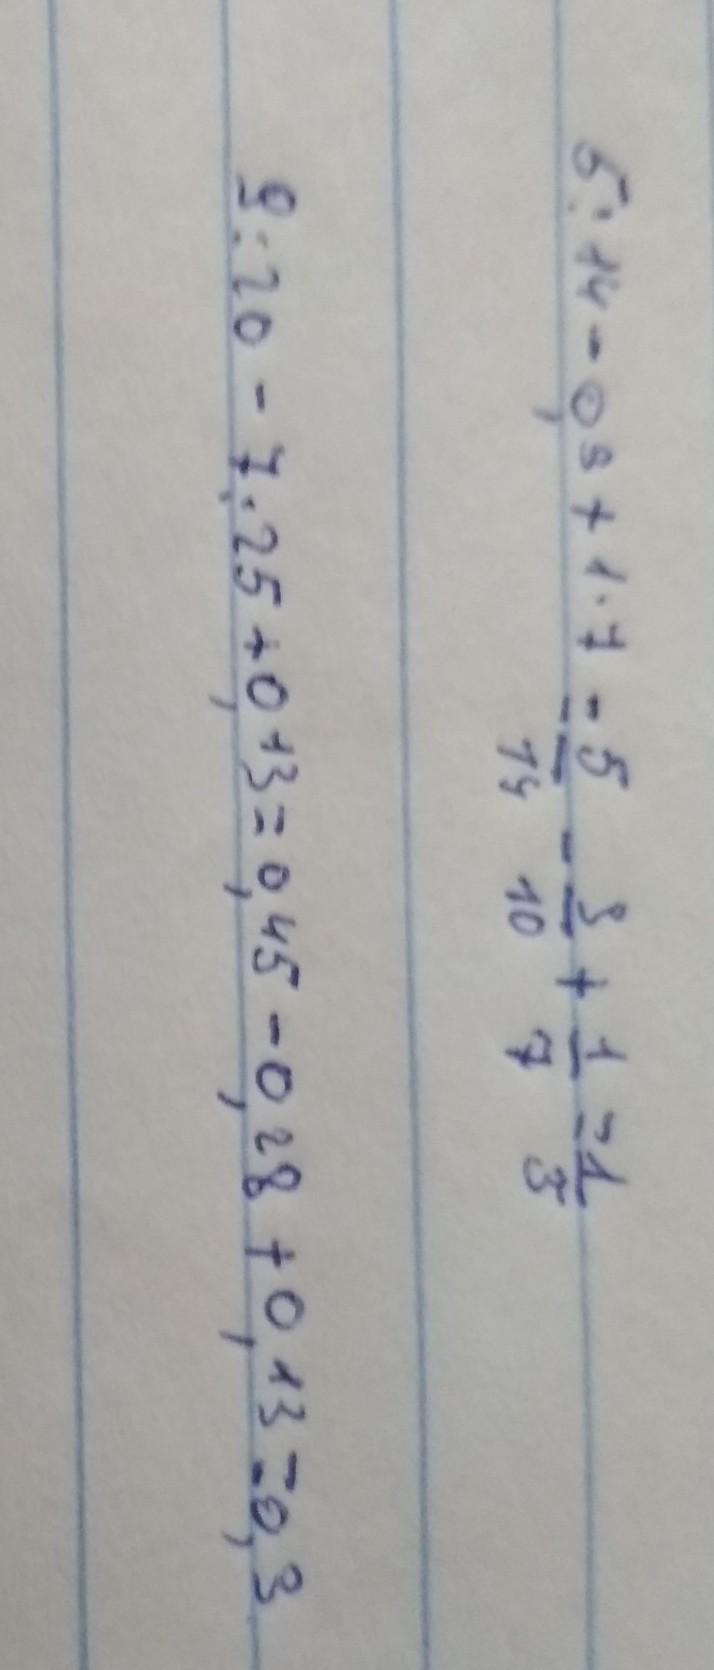 5:14 - 0,3 + 1:7 = 5/14 - 3/10 + 1/7 = 1/5
9:20 - 7:25 + 0,13 = 0,45 - 0,28 + 0,13 = 0,3